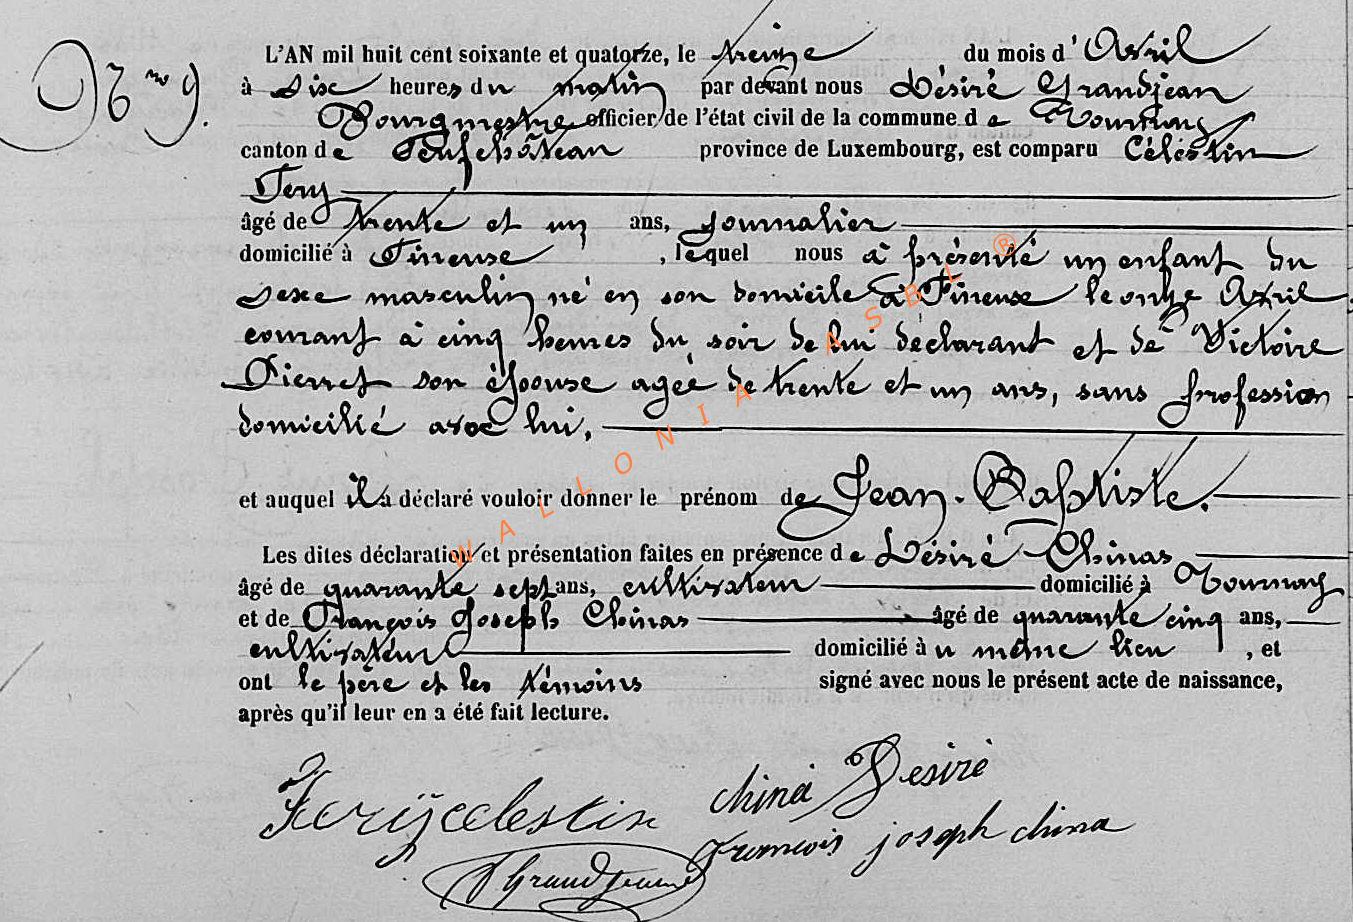 No 9.
L'AN mil huit cent soixante et quatorze, le treize du mois d'Avril
à dix heures du matin par devant nous Désiré Grandjean
Bourgmestre officier de l'état civil de la commune de Tournay
canton de Neufchâteau province de Luxembourg, est comparu Célestin
Fery
âgé de trente et un ans, journalier
domicilié à Tineuse, lequel nous à présenté un enfant du
sexe masculin né en son domicile à Tineuse le onze Avril
courant à cinq heures du soir de lui déclarant et de Victoire
Pierret son épouse agée de trente et un ans, sans profession
domicilié avec lui,
et auquel il a déclaré vouloir donner le prénom de Jean-Baptiste.
Les dites déclaration et présentation faites en présence de Désiré Chinas
âgé de quarante sept ans, cultivateur domicilié à Tournay
et de François Joseph Chinas âgé de quarante cinq ans,
cultivateur domicilié au même lieu, et
ont le père et les témoins signé avec nous le présent acte de naissance,
après qu'il leur en a été fait lecture.
WALLONIA ASBL ®
Ferÿ celestin china Desiré
francois joseph china
Grandjean